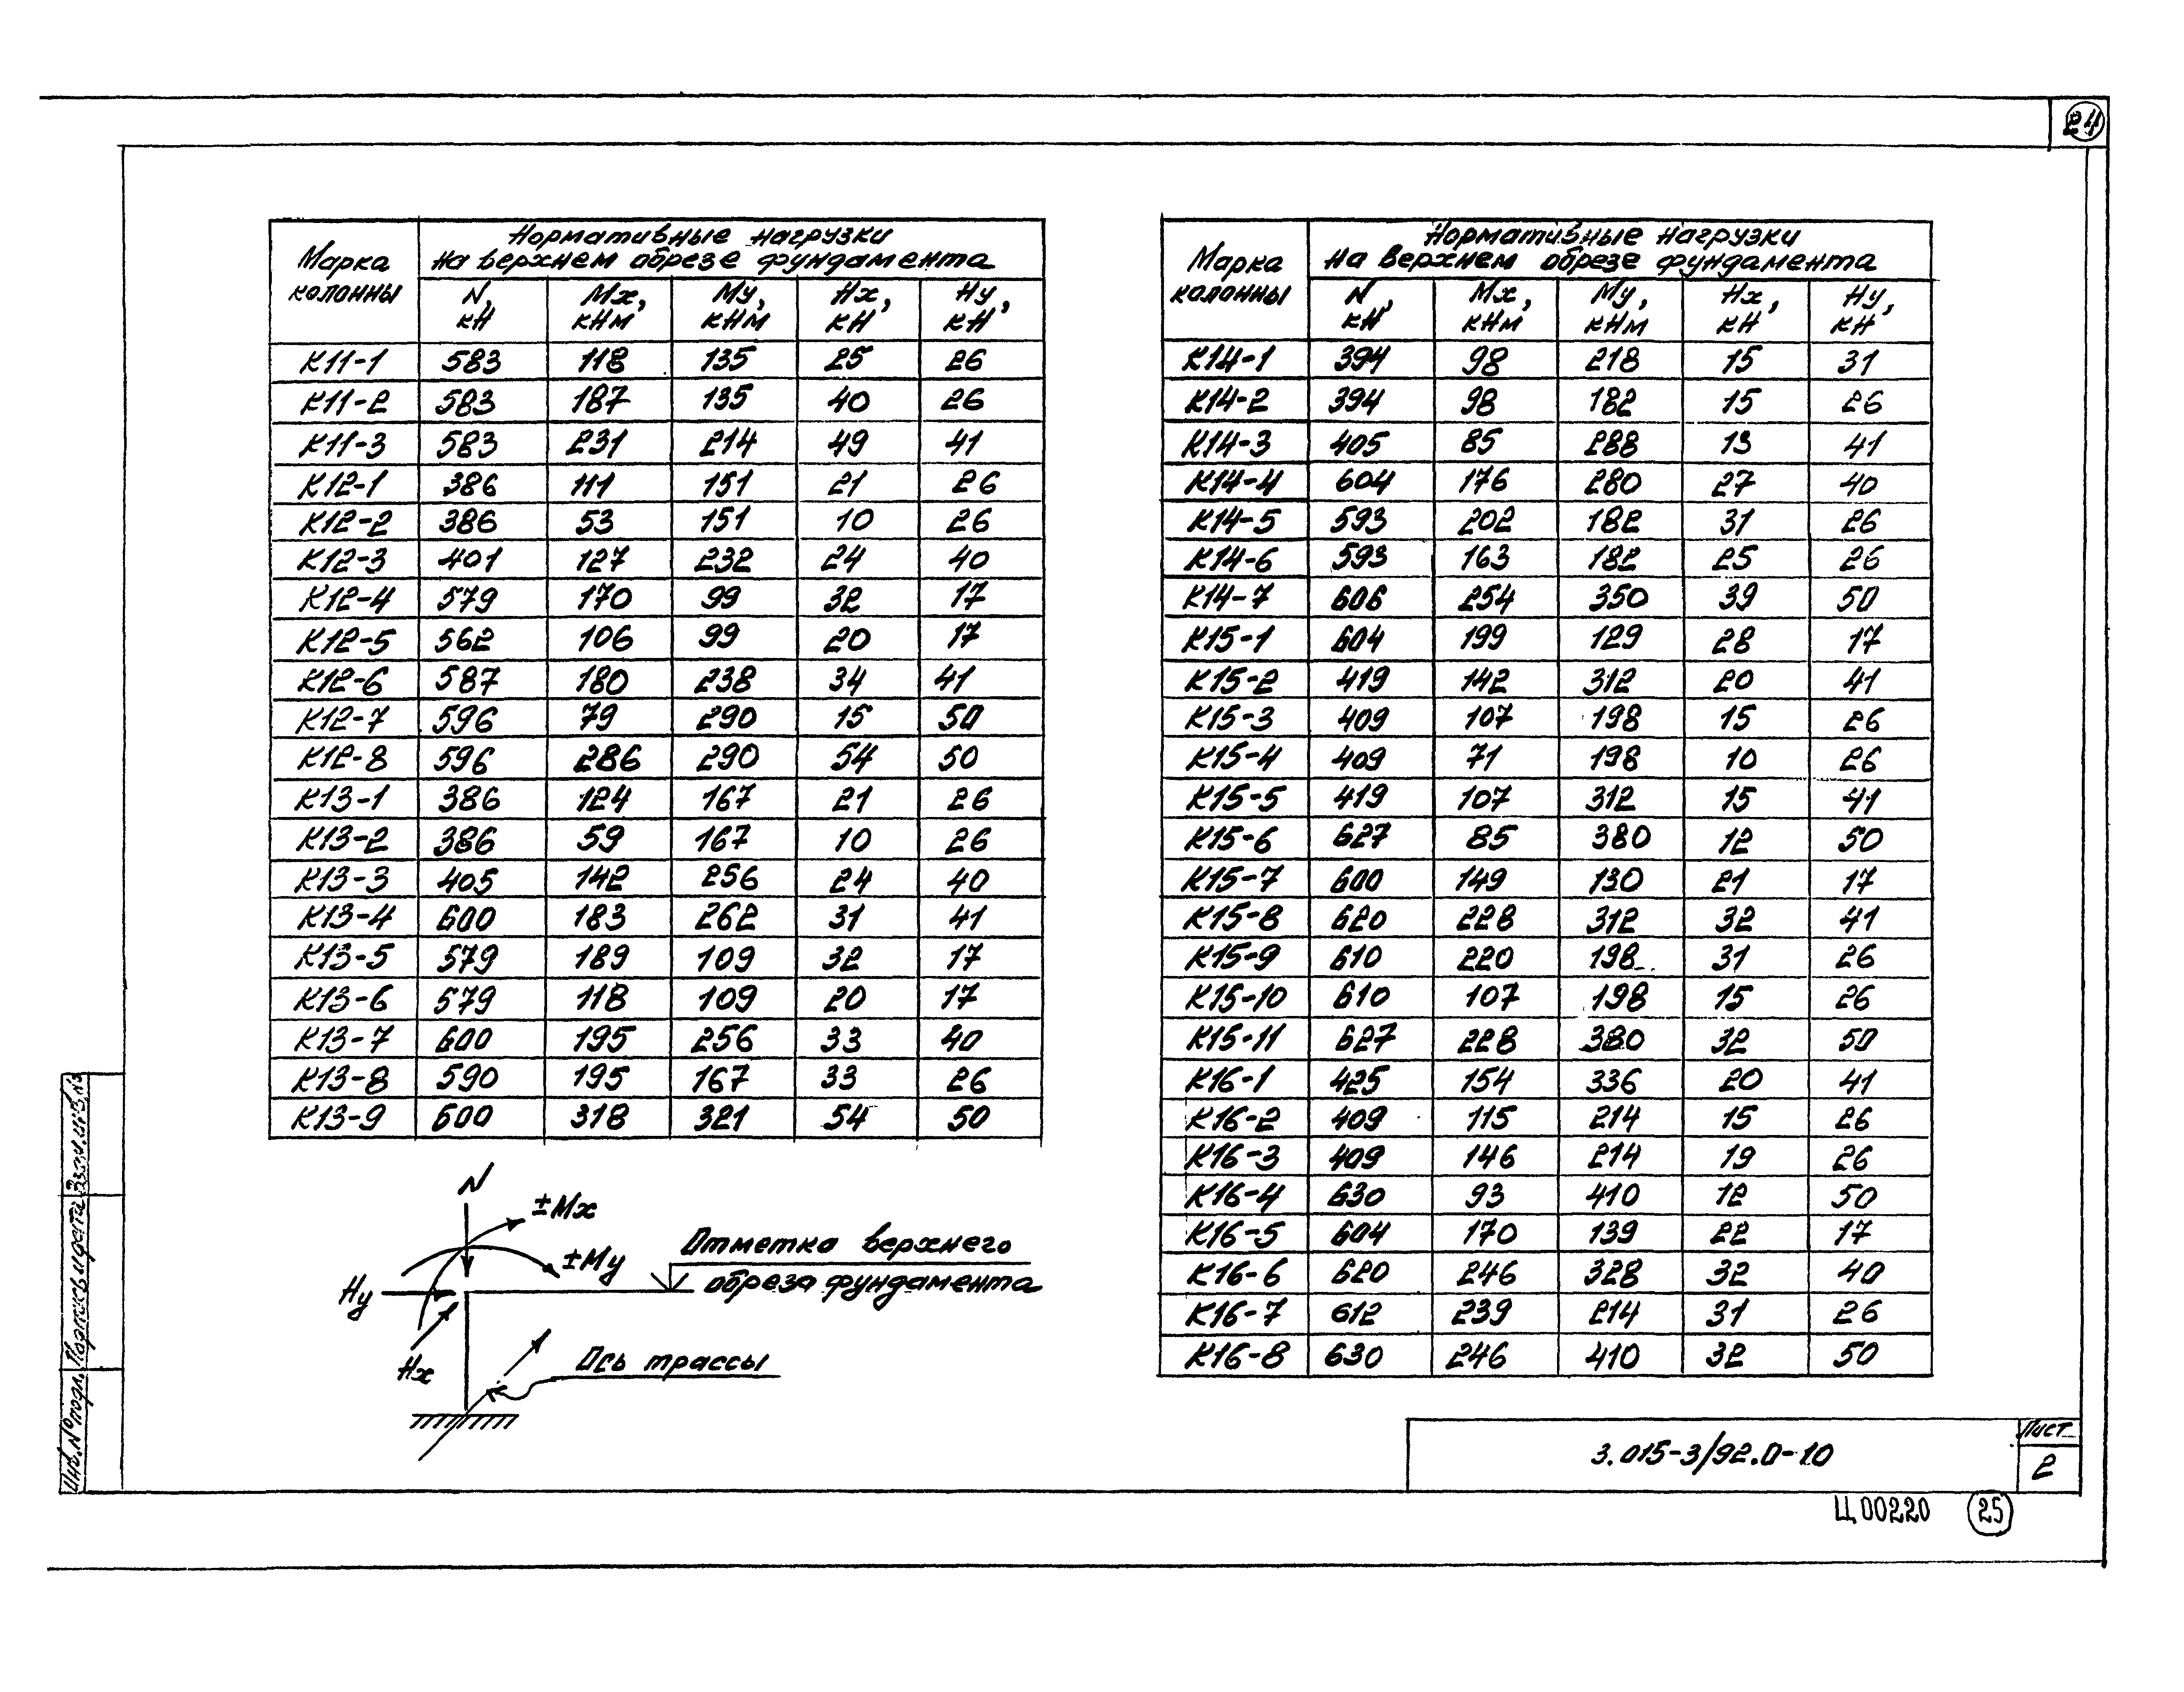 24
Марка колонны
Нормативные нагрузки
на верхнем обрезе фундамента
N, кН Mx, кНм My, кНм Hx, кН Hy, кН
К11-1 583 118 135 25 26
К11-2 583 187 135 40 26
К11-3 583 231 214 49 41
К12-1 386 111 151 21 26
К12-2 386 53 151 10 26
К12-3 401 127 232 24 40
К12-4 579 170 99 32 17
К12-5 562 106 99 20 17
К12-6 587 180 238 34 41
К12-7 596 79 290 15 50
К12-8 596 286 290 54 50
К13-1 386 124 167 21 26
К13-2 386 59 167 10 26
К13-3 405 142 256 24 40
К13-4 600 183 262 31 41
К13-5 579 189 109 32 17
К13-6 579 118 109 20 17
К13-7 600 195 256 33 40
К13-8 590 195 167 33 26
К13-9 600 318 321 54 50
Марка колонны
Нормативные нагрузки
на верхнем обрезе фундамента
N, кН Mx, кНм My, кНм Hx, кН Hy, кН
К14-1 394 98 218 15 31
К14-2 394 98 182 15 26
К14-3 405 85 288 13 41
К14-4 604 176 280 27 40
К14-5 593 202 182 31 26
К14-6 593 163 182 25 26
К14-7 606 254 350 39 50
К15-1 604 199 129 28 17
К15-2 419 142 312 20 41
К15-3 409 107 198 15 26
К15-4 409 71 198 10 26
К15-5 419 107 312 15 41
К15-6 627 85 380 12 50
К15-7 600 149 130 21 17
К15-8 620 228 312 32 41
К15-9 610 220 198 31 26
К15-10 610 107 198 15 26
К15-11 627 228 380 32 50
К16-1 425 154 336 20 41
К16-2 409 115 214 15 26
К16-3 409 146 214 19 26
К16-4 630 93 410 12 50
К16-5 604 170 139 22 17
К16-6 620 246 328 32 40
К16-7 612 239 214 31 26
К16-8 630 246 410 32 50
N
±Mx
±My
Hy
Hx
Отметка верхнего
обреза фундамента
Ось трассы
Инв.№ подл. Подпись и дата Взам.инв.№
3.015-3/92.0-10
Лист
2
Ц00220 25